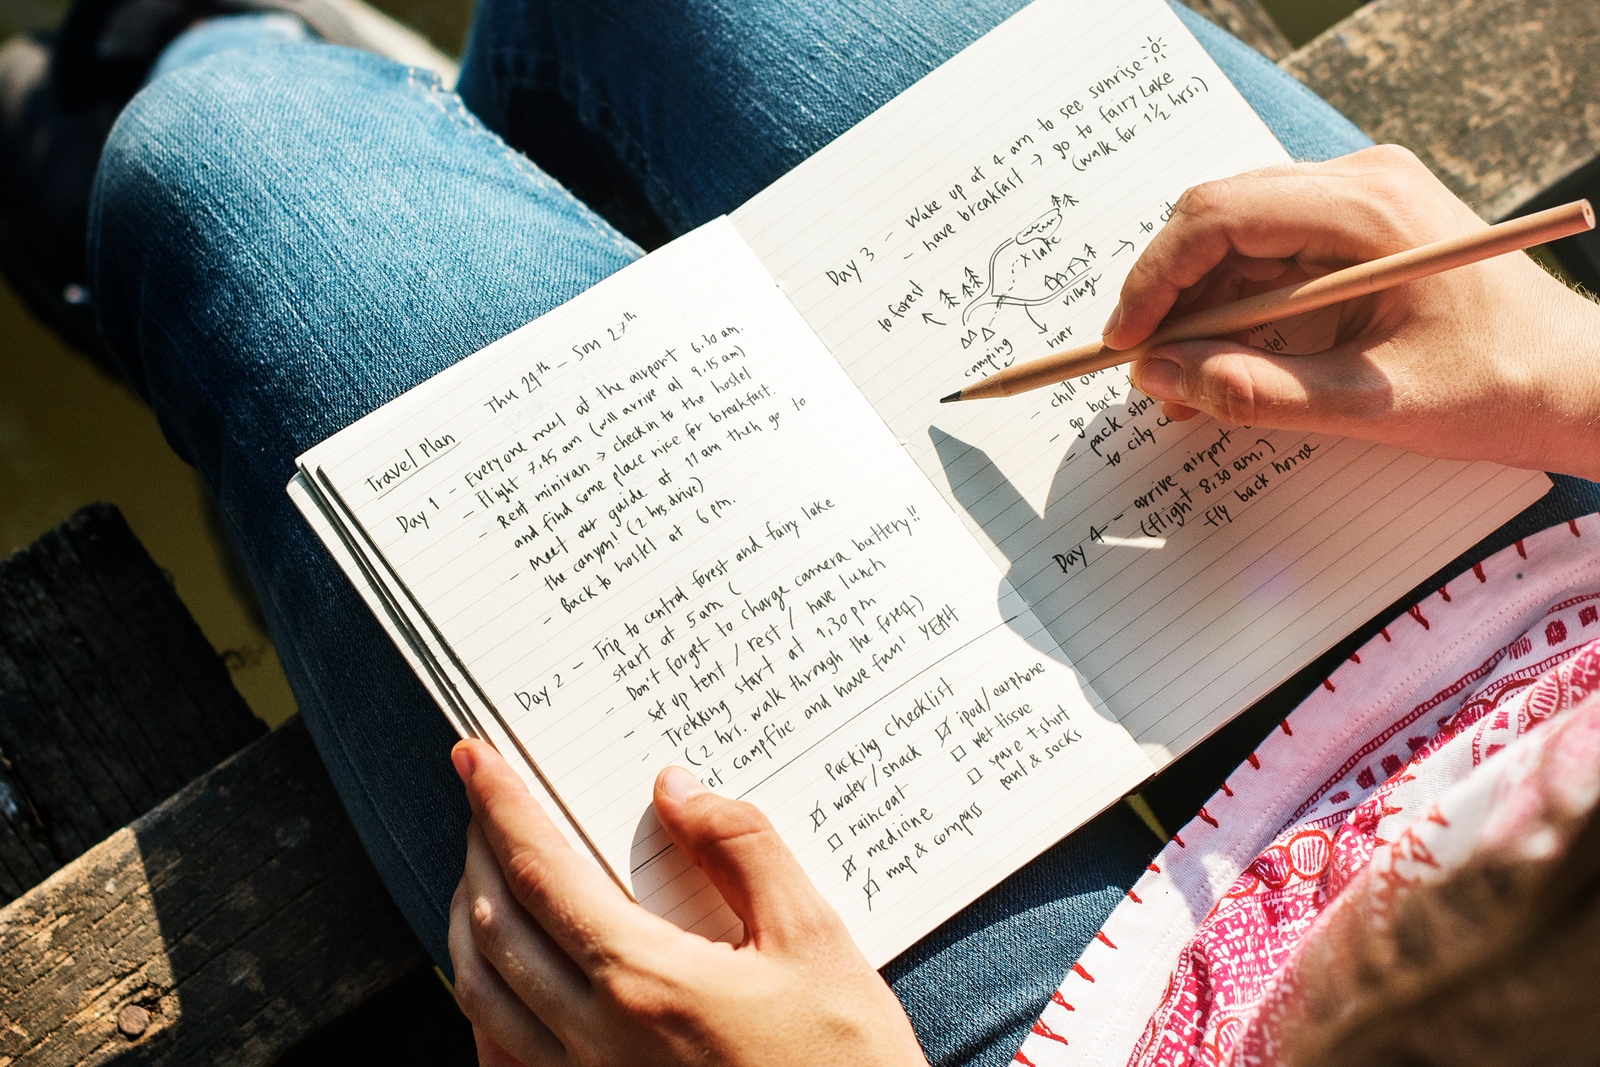 Travel Plan
Thu 24th – Sun 27th
Day 1 - Everyone meet at the airport 6.30 am.
- Flight 7.45 am (will arrive at 9.15 am)
- Rent minivan → checkin to the hostel
and find some place nice for breakfast.
- Meet our guide at 11 am then go to
the canyon! (2 hrs drive)
- Back to hostel at 6 pm.
Day 2 - Trip to central forest and fairy lake
start at 5 am (
- Don't forget to charge camera battery!!
- set up tent / rest / have lunch
- Trekking start at 1.30 pm
(2 hrs. walk through the forest)
campfire and have fun! YEAH
Packing checklist
water / snack
raincoat
medicine
map & compass
ipod / earphone
wet tissue
spare t-shirt
pant & socks
Day 3 - Wake up at 4 am to see sunrise
- have breakfast → go to fairy Lake
(walk for 1½ hrs.)
to forest
lake
village
→ to
river
camping
- chill
- go back
- pack
to city
Day 4 - arrive airport
(flight 8.30 am.)
fly back home